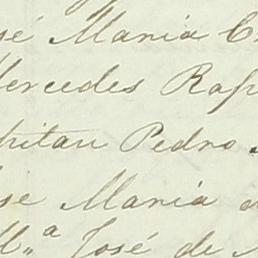 sé Maria C
Mercedes Raf
pitan Pedro
se Maria
M.ª José de